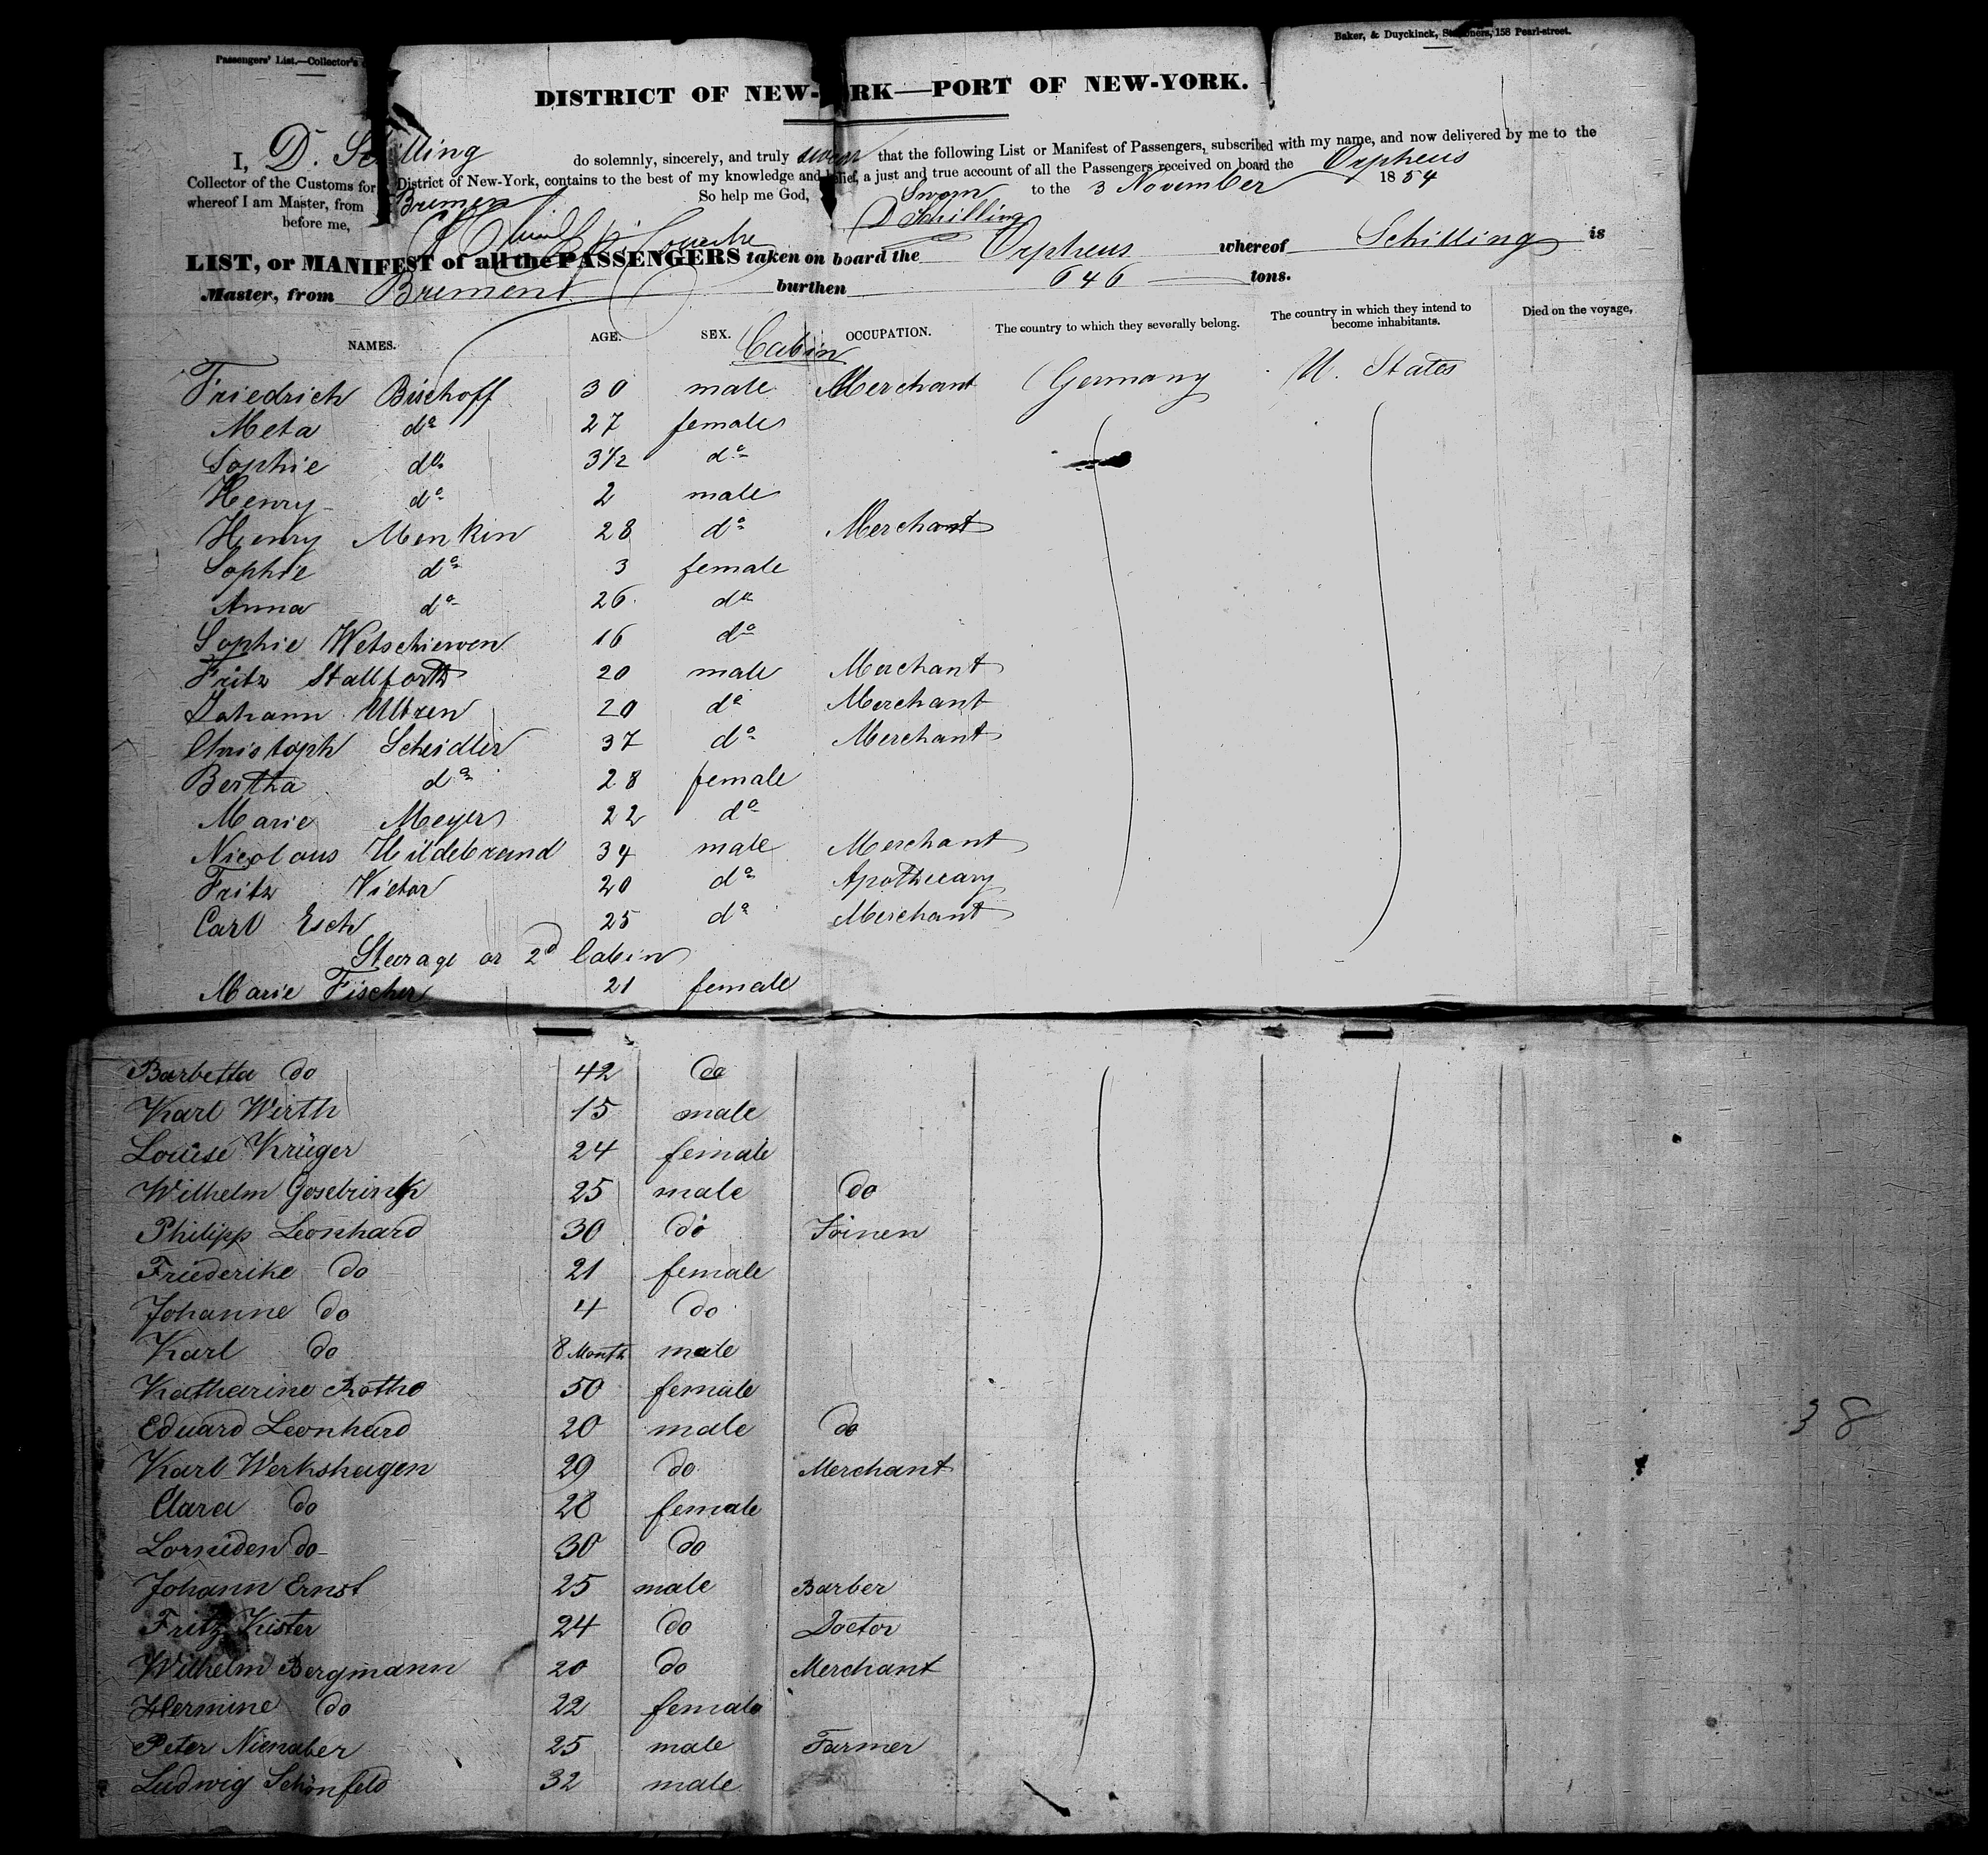 Passengers' List.—Collector's
Baker, & Duyckinck, Stationers, 158 Pearl-street.
DISTRICT OF NEW-YORK—PORT OF NEW-YORK.
I, D. Schilling do solemnly, sincerely, and truly swear that the following List or Manifest of Passengers, subscribed with my name, and now delivered by me to the
Collector of the Customs for District of New-York, contains to the best of my knowledge and belief, a just and true account of all the Passengers received on board the Orpheus
whereof I am Master, from Bremen So help me God, Sworn to the 3 November 1854
before me, D Schilling
LIST, or MANIFEST of all the PASSENGERS taken on board the Orpheus whereof Schilling is
Master, from Bremen burthen 646 tons.
NAMES. AGE. SEX. OCCUPATION. The country to which they severally belong. The country in which they intend to become inhabitants. Died on the voyage,
Cabin
Friedrich Bischoff 30 male Merchant Germany U. States
Meta do 27 female
Sophie do 3 1/2 do
Henry do 2 male
Henry Menkin 28 do Merchant
Sophie do 3 female
Anna do 26 do
Sophie 16 do
Fritz Stallforth 20 male Merchant
Johann 20 do Merchant
Christoph Scheidler 37 do Merchant
Bertha do 28 female
Marie Meyer 22 do
Nicolaus Hildebrand 34 male Merchant
Fritz Victor 20 do Apothecary
Carl Esch 25 do Merchant
Steerage or 2d Cabin
Marie Fischer 21 female
Barbetta do 42 do
Karl Wirth 15 male
Louise Krüger 24 female
Wilhelm Gosebrink 25 male do
Philipp Leonhard 30 do Joinen
Friederike do 21 female
Johanne do 4 do
Karl do 8 Month male
Katharine Rothe 50 female
Eduard Leonhard 20 male do
Karl Werkshagen 29 do Merchant
Clara do 28 female
do 30 do
Johann Ernst 25 male Barber
Fritz Kister 24 do Doctor
Wilhelm Bergmann 20 do Merchant
Hermine do 22 female
Peter Nienaber 25 male Farmer
Ludwig Schönfeld 32 male
38